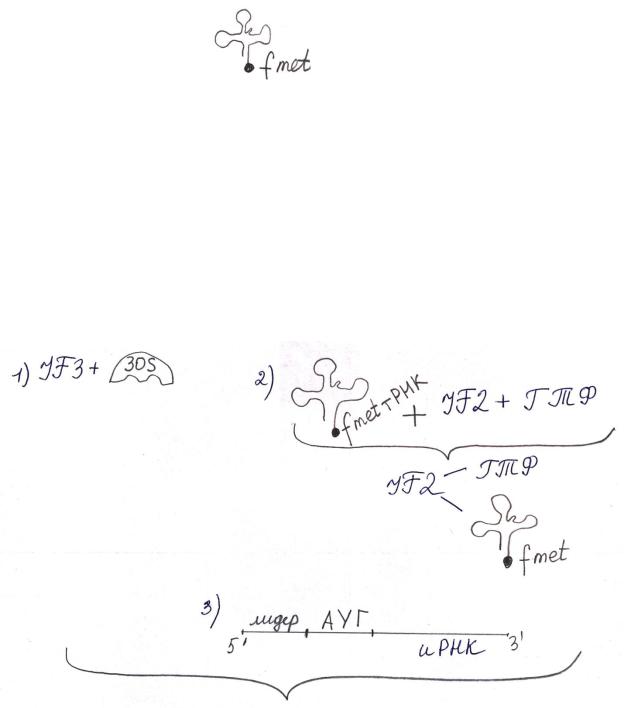 fmet
1) IF3 + 30S
2) fmet тРНК + IF2 + ГТФ
IF2 ГТФ
fmet
3) лидер АУГ
5' иРНК 3'